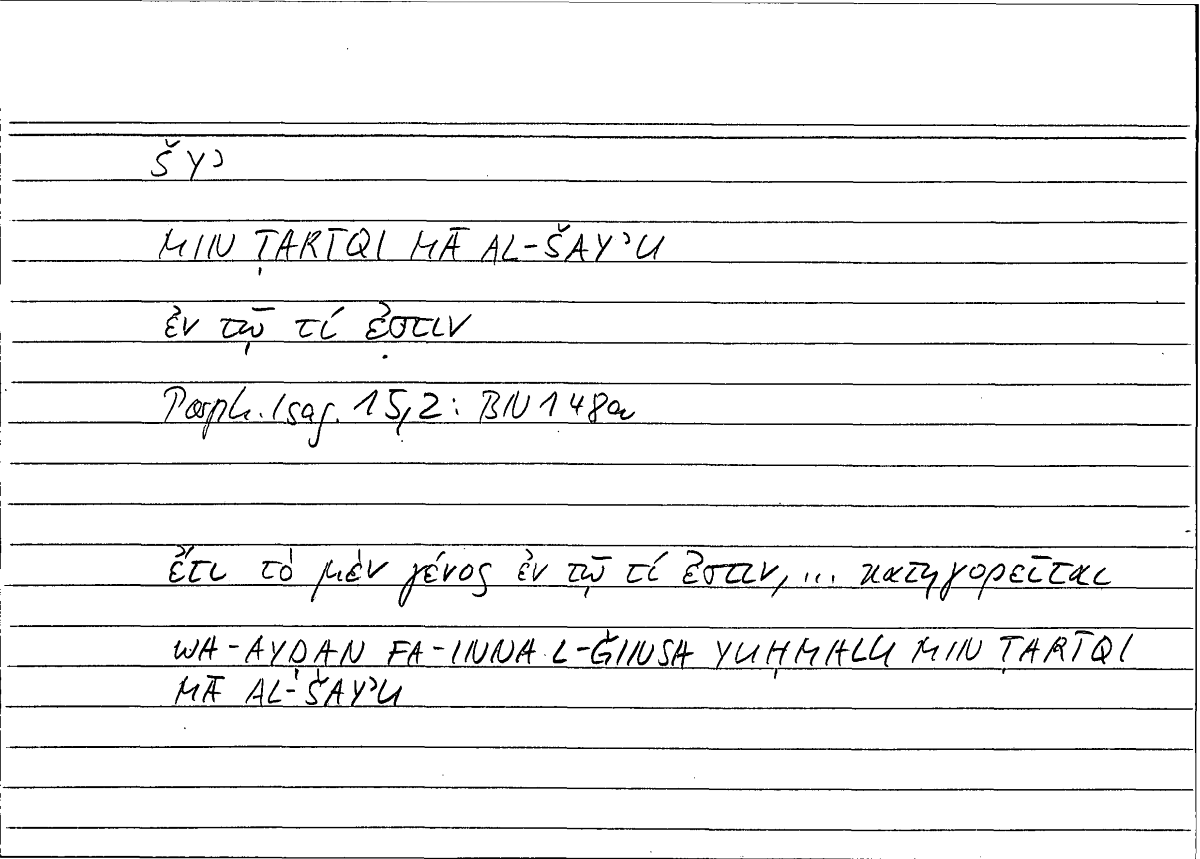 ŠYʾ
MIN ṬARĪQI MĀ AL-ŠAYʾU
ἐν τῷ τί ἐστιν
Porph. Isag. 15,2: BN 148a
ἔτι τὸ μὲν γένος ἐν τῷ τί ἐστιν, ... κατηγορεῖται
WA-AYḌAN FA-INNA L-ǦINSA YUḤMALU MIN ṬARĪQI
MĀ AL-ŠAYʾU